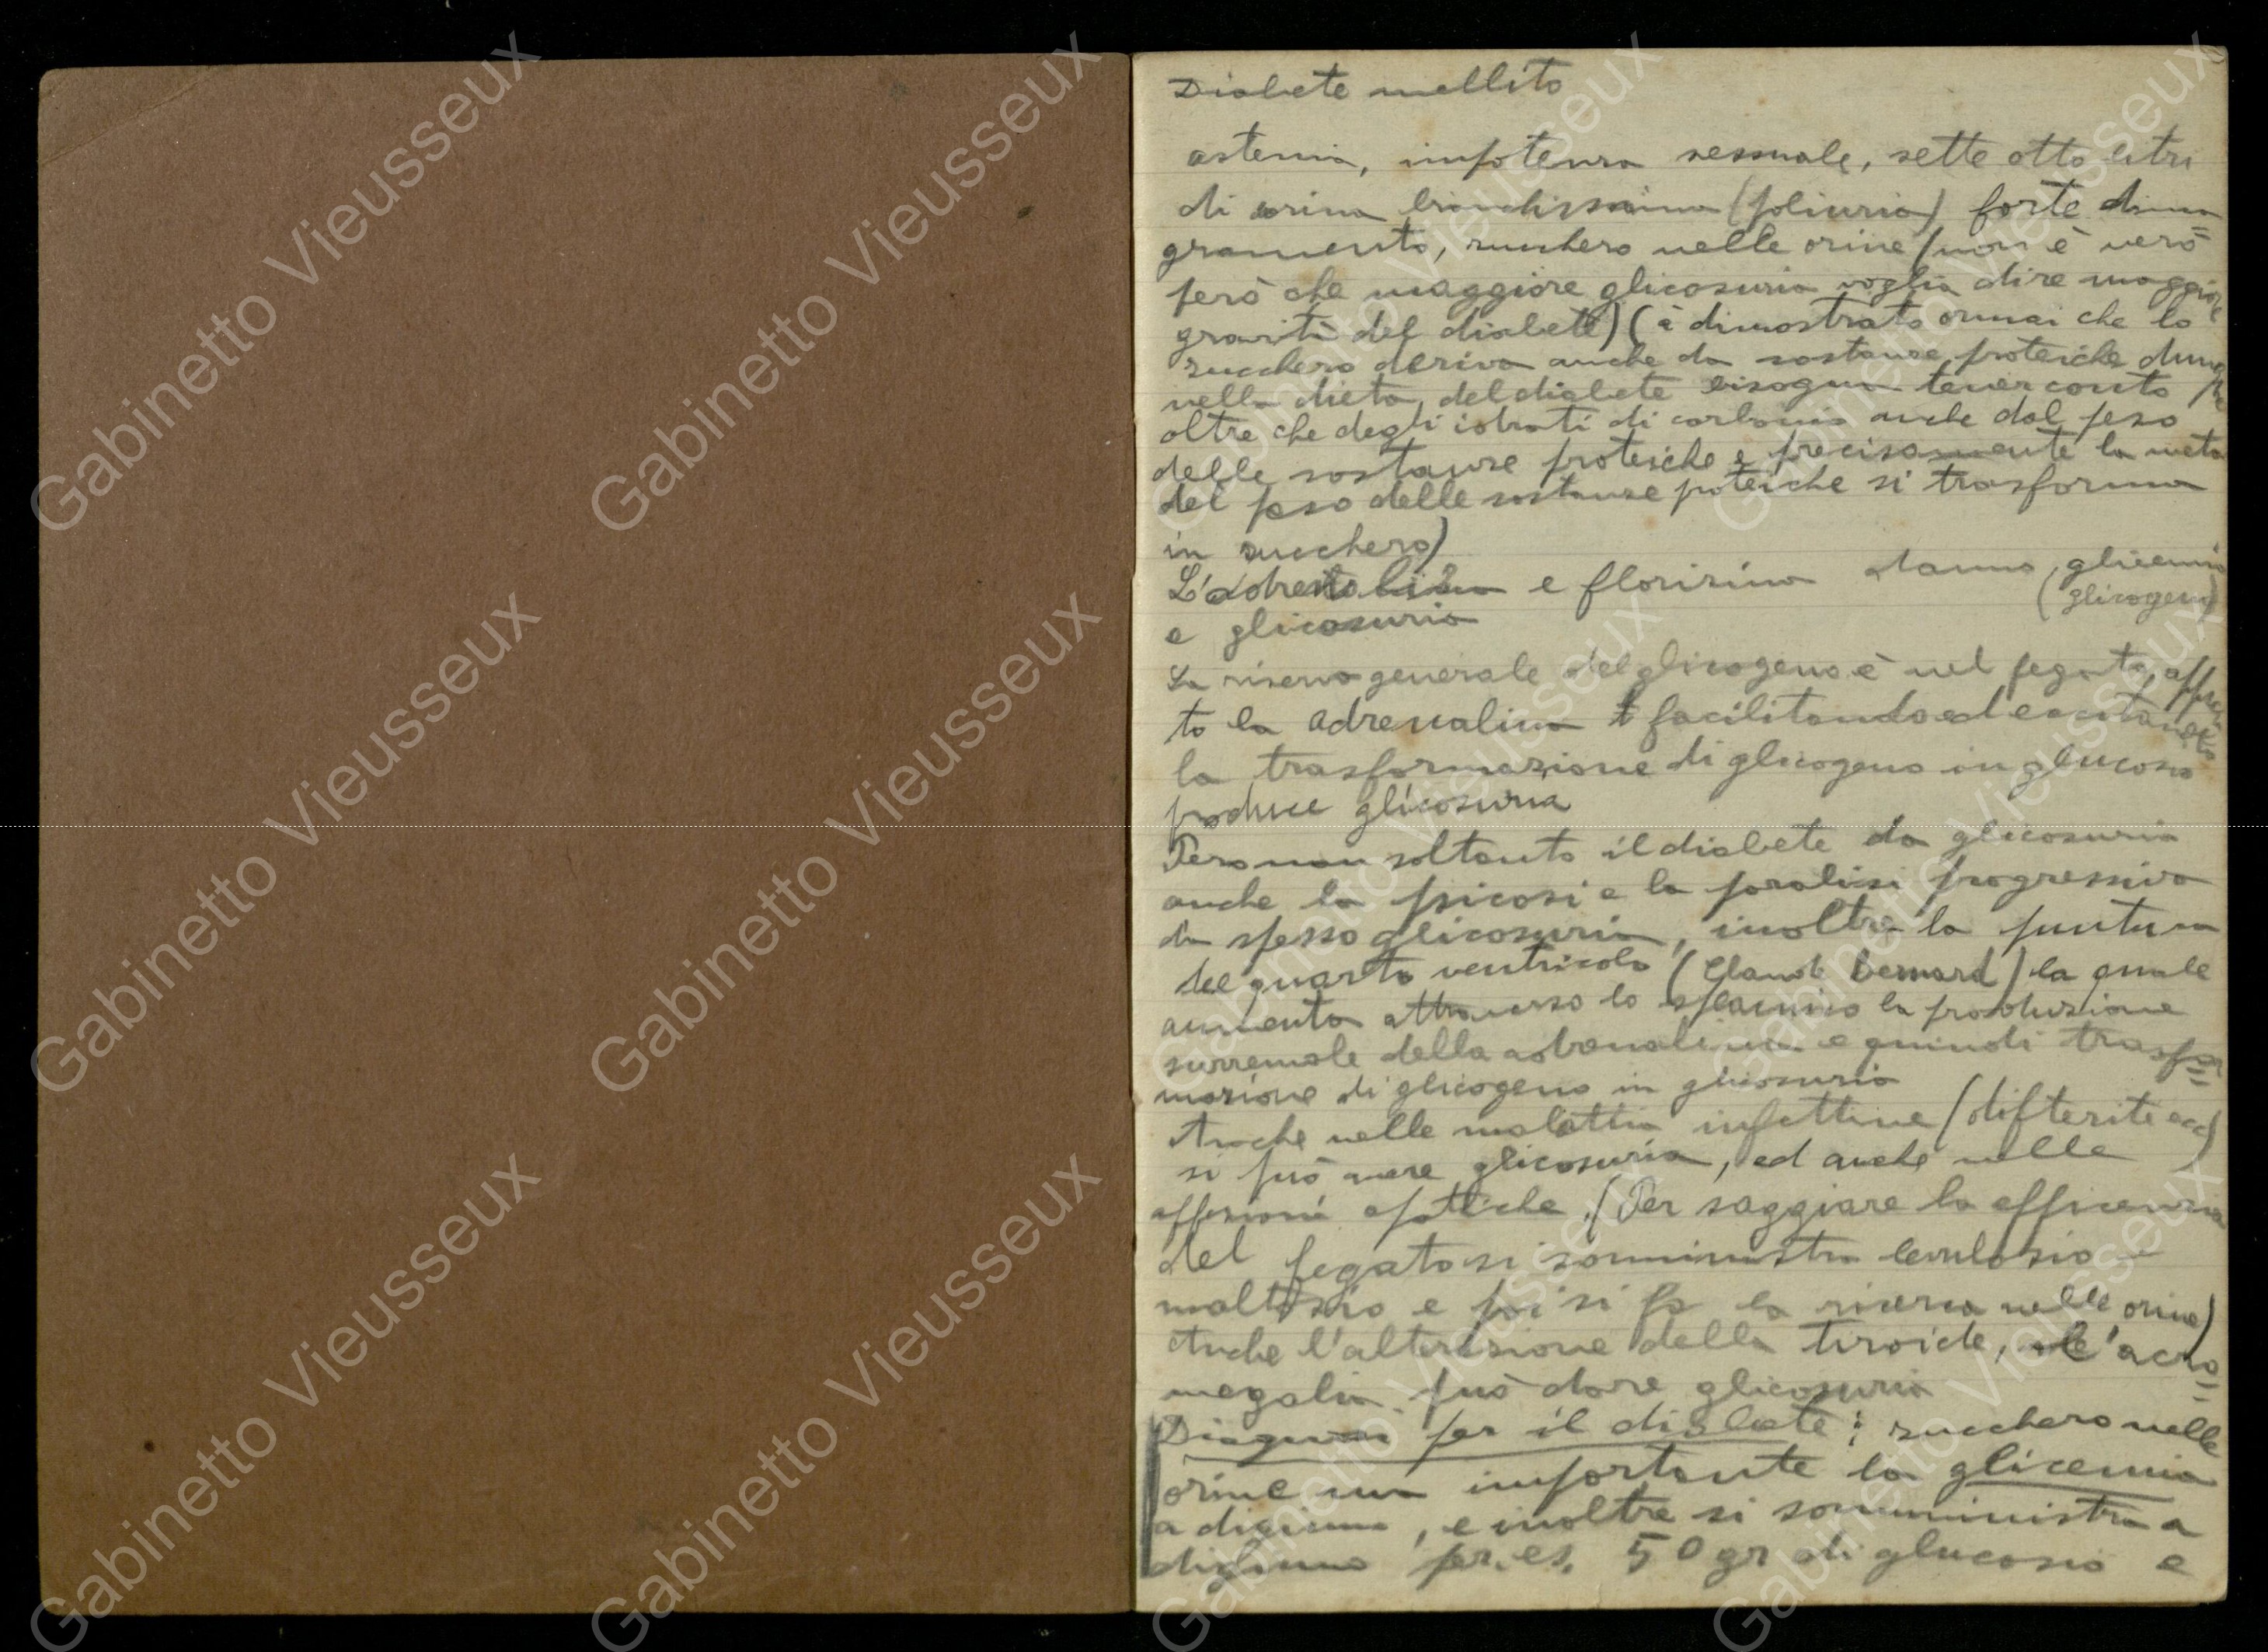 Diabete mellito
astenia, impotenza sessuale, sette otto litri
di orina bianchissima (poliuria) forte dima
gramento, zucchero nelle orine (non è vero=
però che maggiore glicosuria voglia dire maggiore
gravità del diabete) (è dimostrato ormai che lo
zucchero deriva anche da sostanze proteiche dunque
nella dieta del diabete bisogna tener conto
oltre che degli idrati di carbonio anche dal peso
delle sostanze proteiche e precisamente la metà
del peso delle sostanze poteiche si trasforma
in zucchero)
L'adrenalina e florizina danno glicemia
(glicogeno)
e glicosuria
La riserva generale del glicogeno è nel fegato, appun
to la adrenalina facilitando ed eccitando
la trasformazione di glicogeno in glucosio
produce glicosuria
Pero non soltanto il diabete da glicosuria
anche la psicosi e la paralisi progressiva
da spesso glicosuria, inoltre la puntura
del quarto ventricolo (Claude Bernard) la quale
aumenta attraverso lo splacnico la produzione
surrenale della adrenalina e quindi trasfor=
mazione di glicogeno in glicosuria
Anche nelle malattie infettive (difterite ecc)
si può avere glicosuria, ed anche nelle
affezioni epatiche. (Per saggiare la efficenza
del fegato si somministra levulosio e
maltosio e poi si fa la ricerca nelle orine)
Anche l'alterazione della tiroide, l'acro=
megalia può dare glicosuria
Diagnosi per il diabete: zucchero nelle
orine ma importante la glicemia
a digiuno, e inoltre si somministra a
digiuno per. es. 50 gr di glucosio e
Gabinetto Vieusseux
Gabinetto Vieusseux
Gabinetto Vieusseux
Gabinetto Vieusseux
Gabinetto Vieusseux
Gabinetto Vieusseux
Gabinetto Vieusseux
Gabinetto Vieusseux
Gabinetto Vieusseux
Gabinetto Vieusseux
Gabinetto Vieusseux
Gabinetto Vieusseux